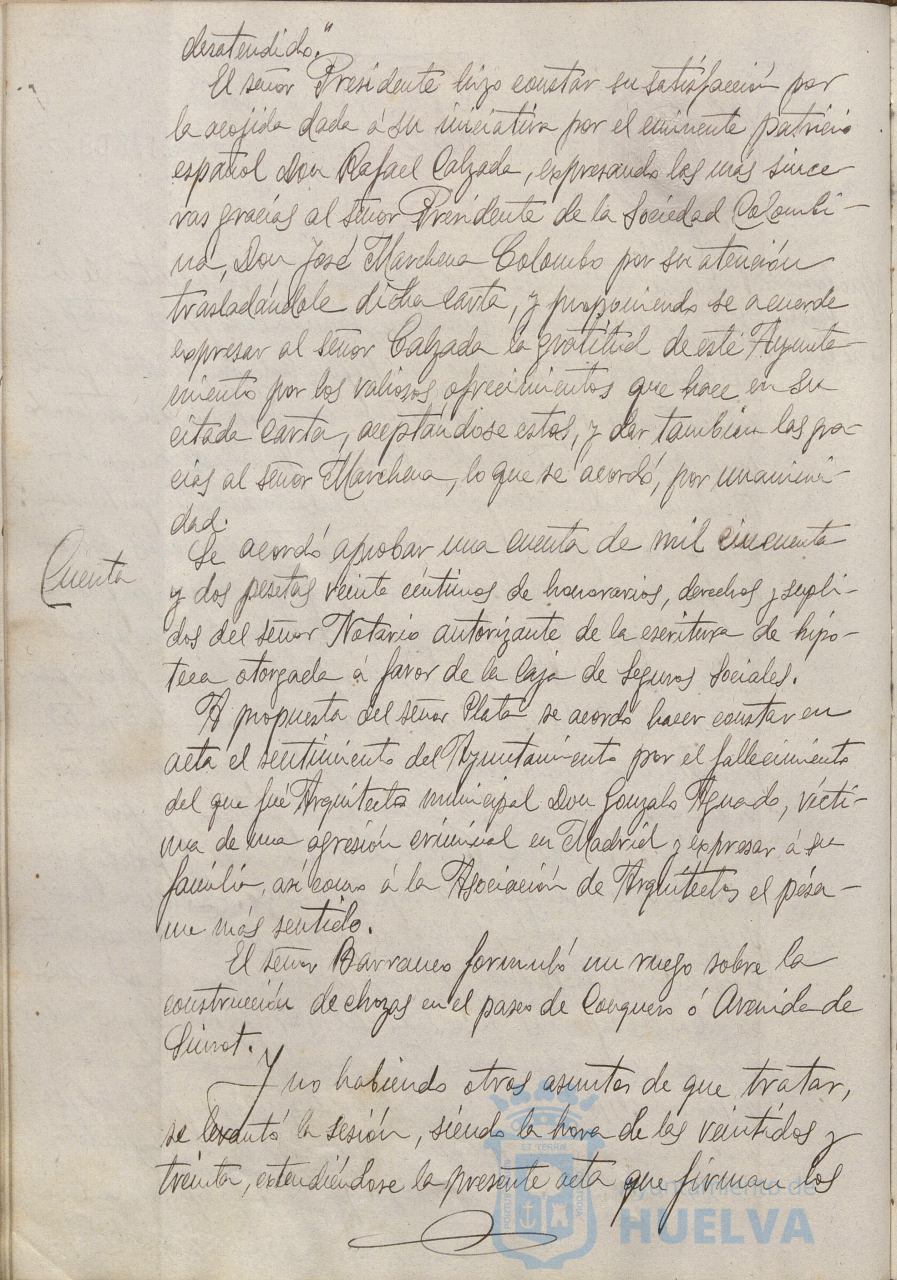 desatendido."
El señor Presidente hizo constar su satisfacción por
la acojida dada á su iniciativa por el eminente patricio
español Don Rafael Calzada, expresando las más since-
ras gracias al señor Presidente de la Sociedad Colombi-
na, Don José Marchena Colombo por su atención
trasladándole dicha carta, y proponiendo se acuerde
expresar al señor Calzada la gratitud de este Ayunta-
miento por los valiosos ofrecimientos que hace en su
citada carta, aceptándose estos, y dar tambien las gra-
cias al señor Marchena, lo que se acordó, por unanimi-
dad.
Cuenta
Se acordó aprobar una cuenta de mil cincuenta
y dos pesetas veinte céntimos de honorarios, derechos y supli-
dos del señor Notario autorizante de la escritura de hipo-
teca otorgada á favor de la Caja de Seguros Sociales.
A propuesta del señor Plata se acordó hacer constar en
acta el sentimiento del Ayuntamiento por el fallecimiento
del que fué Arquitecto municipal Don Gonzalo Aguado, vícti-
ma de una agresión criminal en Madrid y expresar á su
familia, así como á la Asociación de Arquitectos el pésa-
me más sentido.
El señor Barranco formuló un ruego sobre la
construcción de chozas en el paseo de Conquero ó Avenida de
Siurot.
Y no habiendo otros asuntos de que tratar,
se levantó la sesión, siendo la hora de las veintidos y
treinta, extendiéndose la presente acta que firman los
Ayuntamiento de
HUELVA